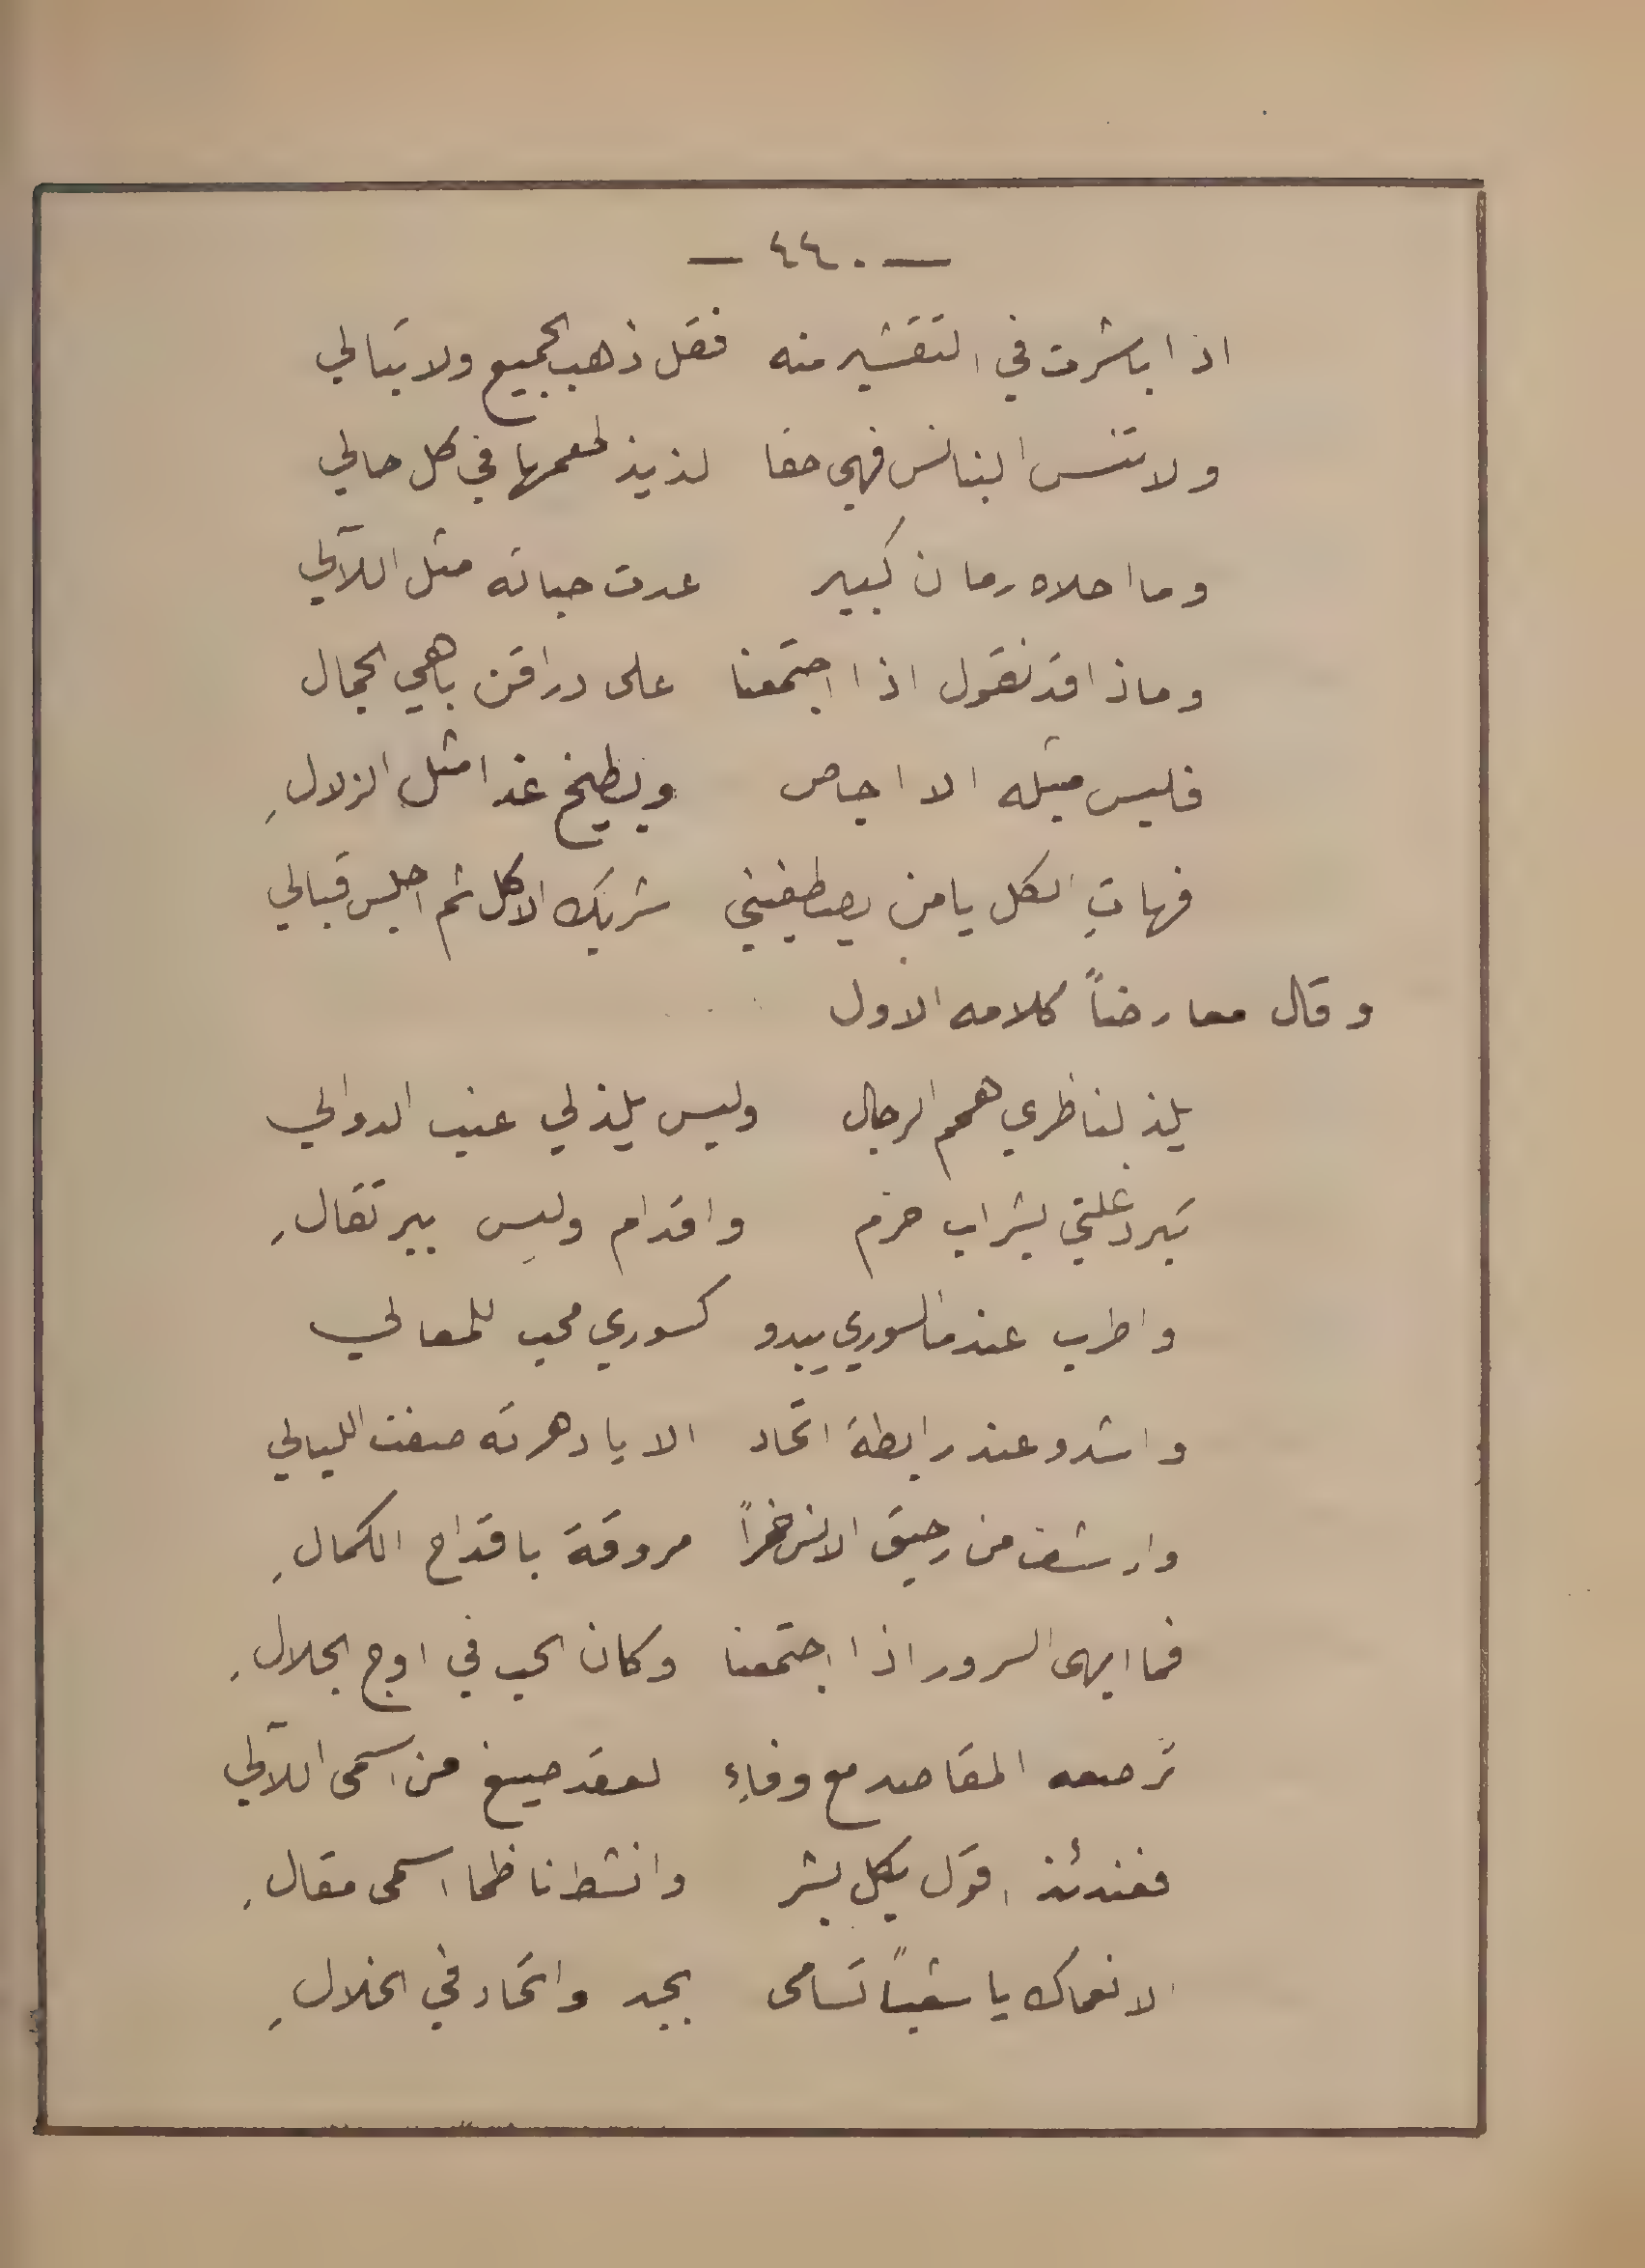 — ٤٤٠ —
اذا باشرت في التقشير منه فقل ذهب الجميع ولا تبالي
ولا تنس البنانس فهي حقا لذيذ طعمها في كل حالي
وما احلاه رمان كبير عدت حباته مثل اللآلي
وماذا قد نقول اذا اجتمعنا على دراقن باهي الجمال
فليس مثله الا اجاص وبطيخ غدا مثل الزلالِ
فهاتِ الكل يا من يصطفيني شريك الاكل ثم اجلس قبالي
وقال معارضاً كلامه الاول
يلذ لناظري همم الرجال وليس يلذ لي عنب الدوالي
تبرد غلتي بشراب حزم واقدام وليس ببرتقالِ
واطرب عندما السوري يبدو كسوري محب للمعالي
واشدو عند رابطة اتحاد الا يا دهر ته صفت الليالي
وارشف من رحيق الانس خمراً مروقة باقداح الكمالِ
فما ابهى السرور اذا اجتمعنا وكان الحب في اوج الجلالِ
ترصعه المقاصد مع وفاءِ لعقد صيغ من اسمى اللآلي
فعندئذ اقول بكل بشر وانشط ناظما اسمى مقالِ
الا نعماك يا شعباً تسامى بجد واتحاد في الخلالِ